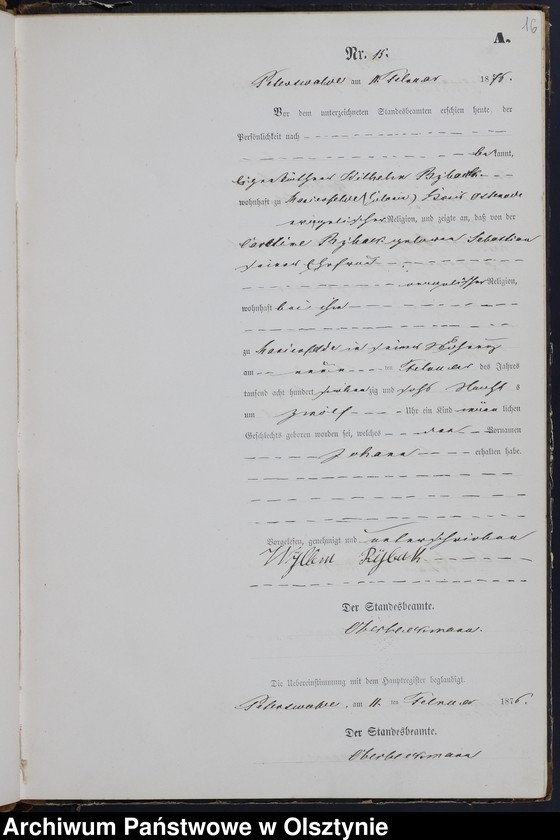 16
A.
Nr. 15.
Peterswalde am 11. Februar 1876.
Vor dem unterzeichneten Standesbeamten erschien heute, der
Persönlichkeit nach
bekannt,
Eigenkäthner Wilhelm Ryback
wohnhaft zu Marienfelde Kreis Osterode
evangelischer Religion, und zeigte an, daß von der
Caroline Ryback geboren Sebastian
seiner Ehefrau
evangelischer Religion,
wohnhaft bei ihm
zu Marienfelde in seiner Wohnung
am neun ten Februar des Jahres
tausend acht hundert siebenzig und sechs Nachts
um zwölf Uhr ein Kind männlichen
Geschlechts geboren worden sei, welches den Vornamen
Johann erhalten habe.
Vorgelesen, genehmigt und unterschrieben
Wylhem Rÿback
Der Standesbeamte.
Oberbeckmann.
Die Uebereinstimmung mit dem Hauptregister beglaubigt.
Peterswalde, am 11. ten Februar 1876.
Der Standesbeamte.
Oberbeckmann
Archiwum Państwowe w Olsztynie